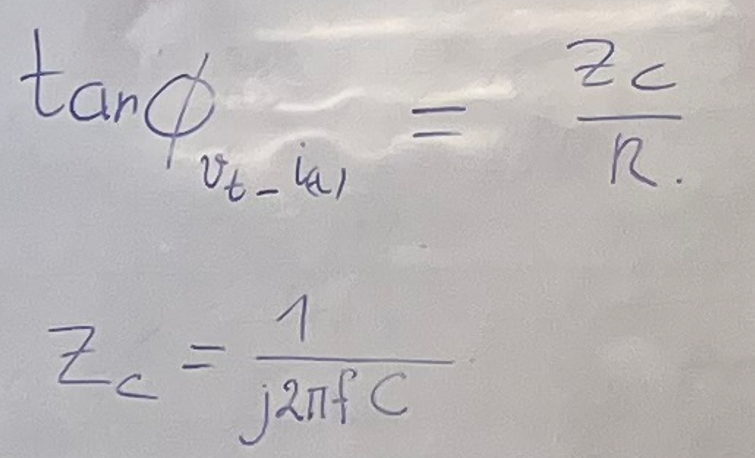 tanϕ_{v_t - i(t)} = Z_C / R.
Z_C = 1 / j2πfC